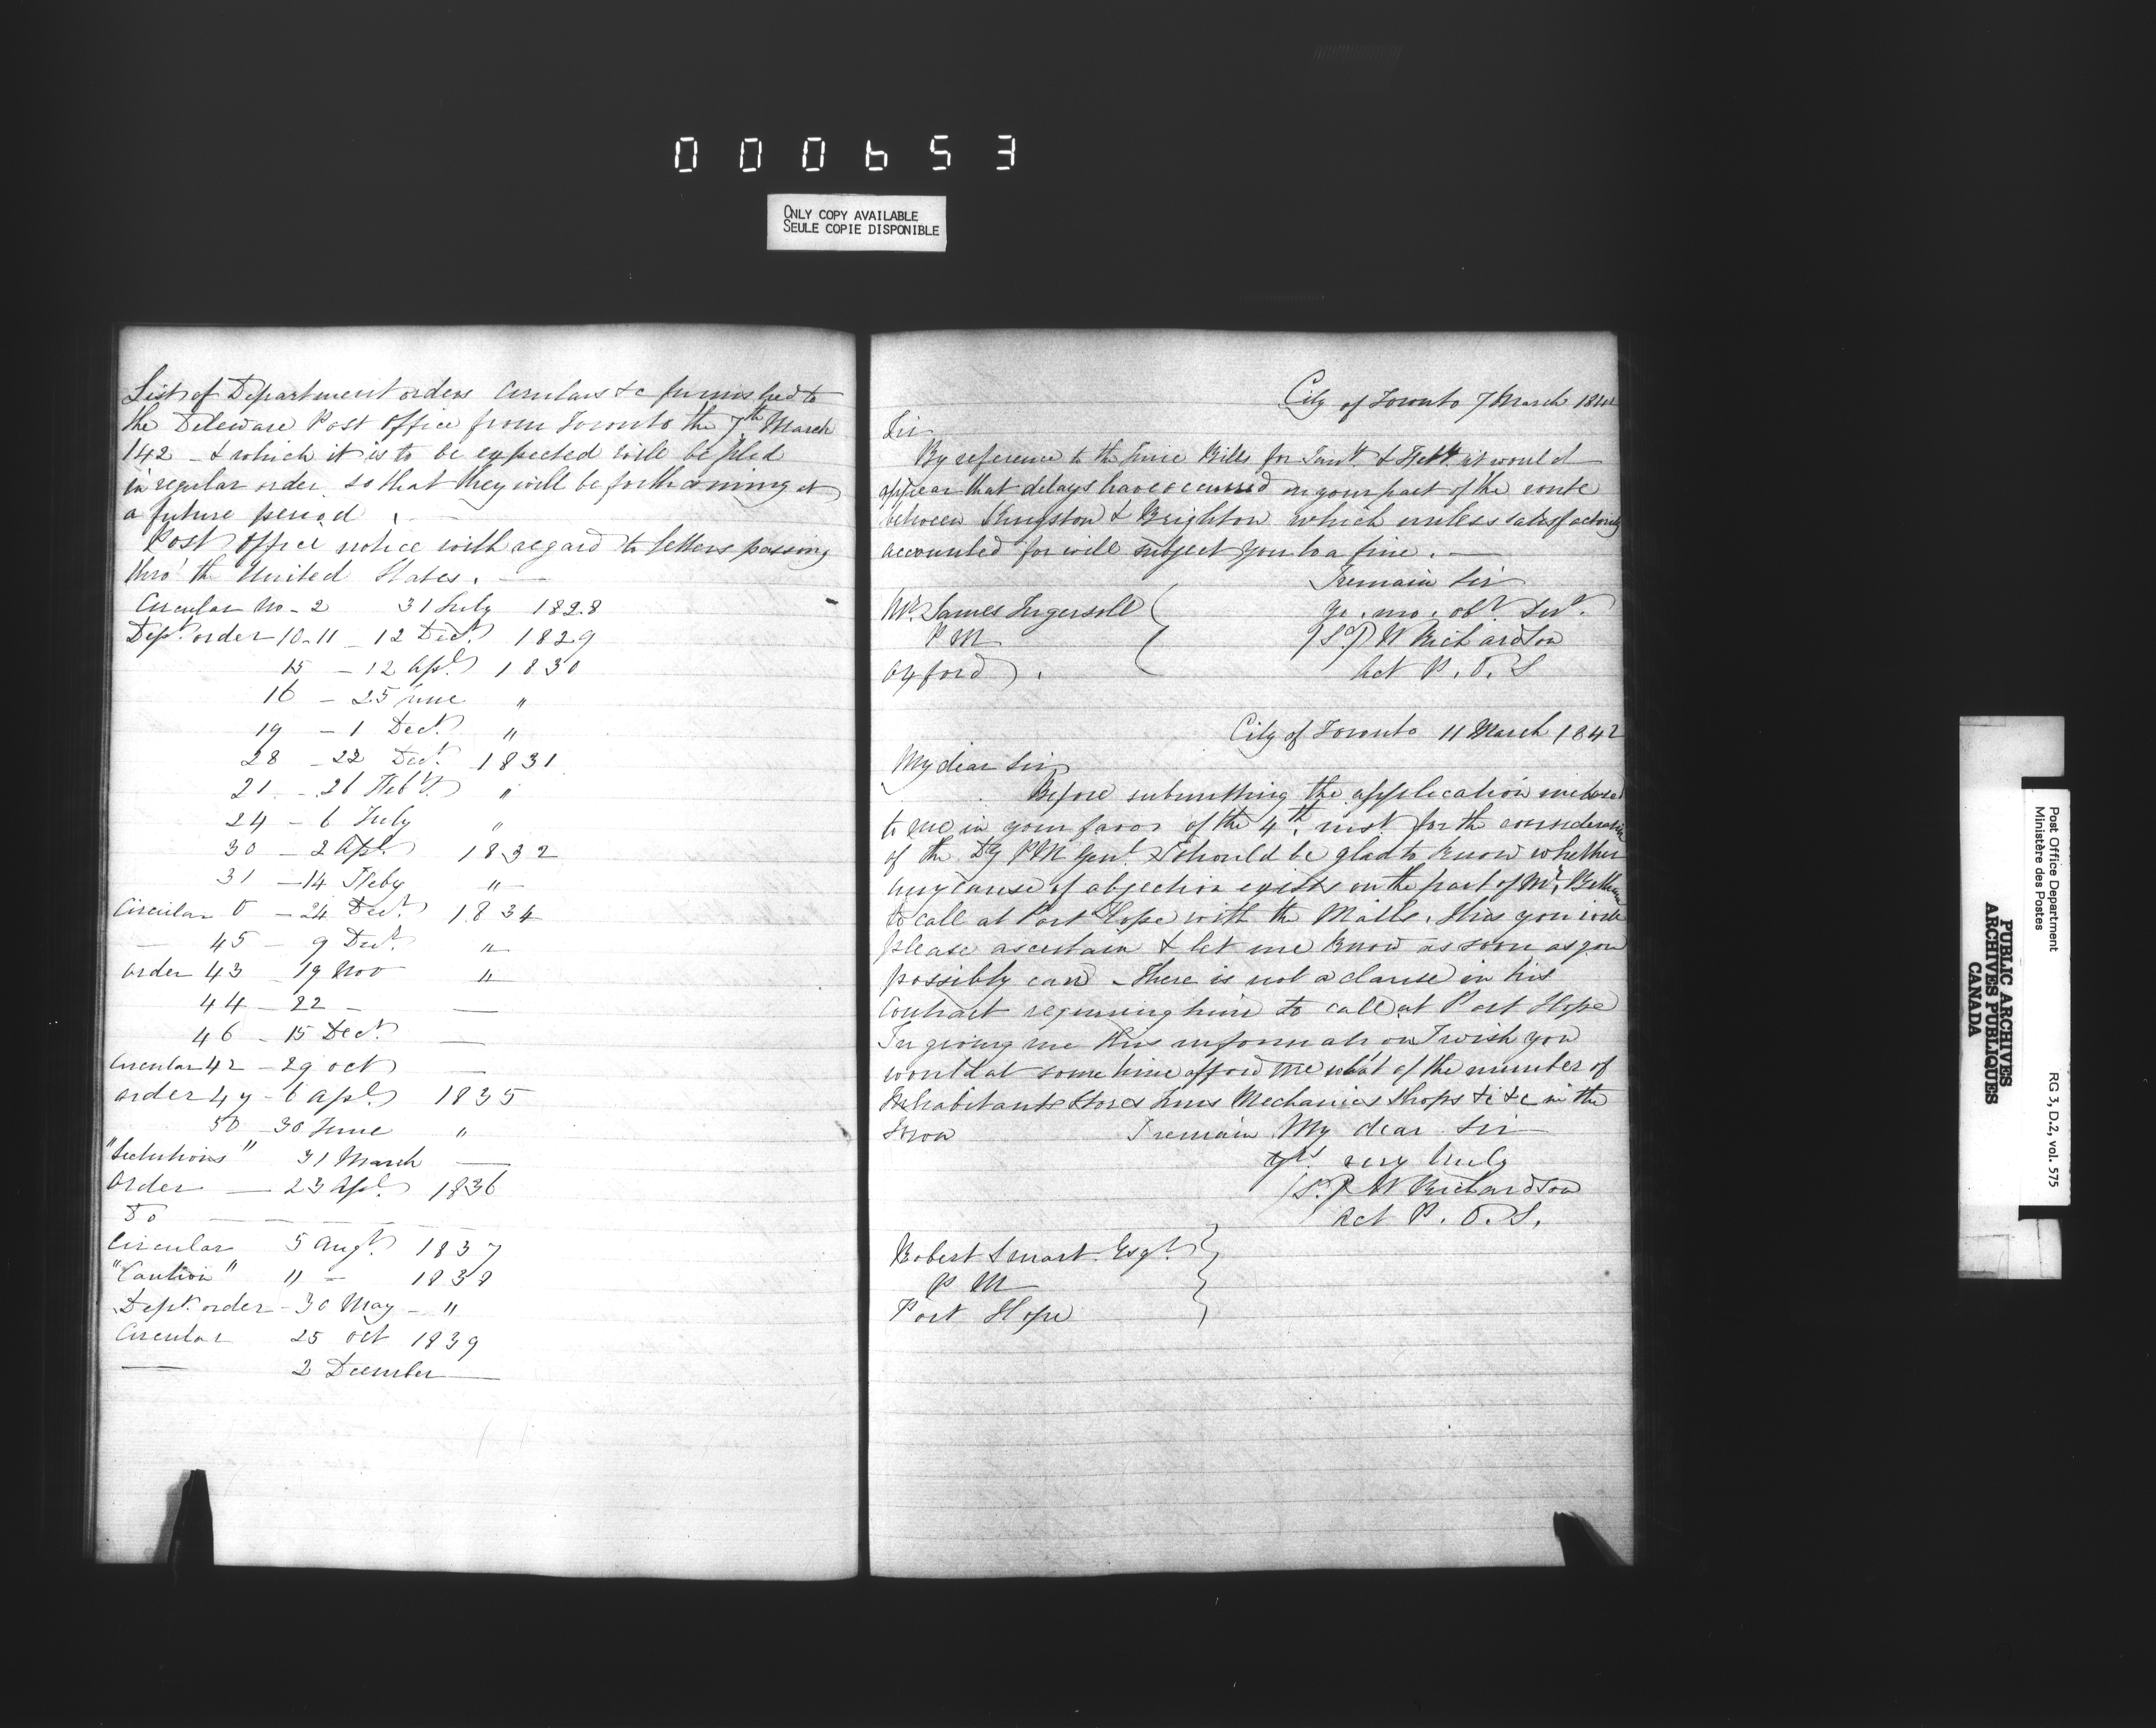 000653
ONLY COPY AVAILABLE
SEULE COPIE DISPONIBLE
List of Department orders Circulars &c furnished to
the Deleware Post Office from Toronto the 7th March
142 - & which it is to be expected will be filed
in regular order so that they will be forthcoming at
a future period.
Post Office notice with regard to letters passing
thro' the United States.
Circular No - 2 31 July 1828
Dept. order 10-11 - 12 Decr. 1829
15 - 12 Apl. 1830
16 - 25 June "
19 - 1 Decr. "
28 - 22 Decr. 1831
21 - 26 Feby. "
24 - 6 July "
30 - 2 Apl. 1832
31 - 14 Feby "
Circular 0 - 24 Decr. 1834
— 45 - 9 Decr. "
Order 43 19 Nov "
44 - 22 - —
46 - 15 Decr —
Circular 42 - 29 Oct —
Order 47 - 6 Apl. 1835
50 - 30 June "
31 March —
Order — 23 Apl. 1836
Do — — — — — —
Circular 5 Augt. 1837
"Caution" " - 1838
Dept. order - 30 May - "
Circular 25 Oct 1839
— 2 December —
City of Toronto 7 March 1842
Sir
By reference to the Time Bills for Jany. & Feby. it would
appear that delays have occurred on your part of the route
between Kingston & Brighton which unless satisfactorily
accounted for will subject you to a fine.
I remain Sir
Yr. mo. obt. Servt.
(Sd.) W Richardson
Act P.O.S
Mr. James Ingersoll
P M
Oxford.
City of Toronto 11 March 1842
My dear Sir
Before submitting the application inclosed
to me in your favor of the 4th. inst. for the consideration
of the Dy P M Genl. I should be glad to know whether
any cause of objection exists on the part of Mr. Bethune
to call at Port Hope with the Mails. This you will
please ascertain & let me know as soon as you
possibly can - there is not a clause in his
Contract requiring him to call at Port Hope
In giving me this information I wish you
would at some time afford me what of the number of
Inhabitants Stores Inns Mechanics Shops &c &c in the
Town I remain My dear Sir
Yrs. very truly
(Sd.) W Richardson
Act P.O.S.
Robert Smart Esqr.
P M
Port Hope
Post Office Department
Ministère des Postes
RG 3, D.2, vol. 575
PUBLIC ARCHIVES
ARCHIVES PUBLIQUES
CANADA